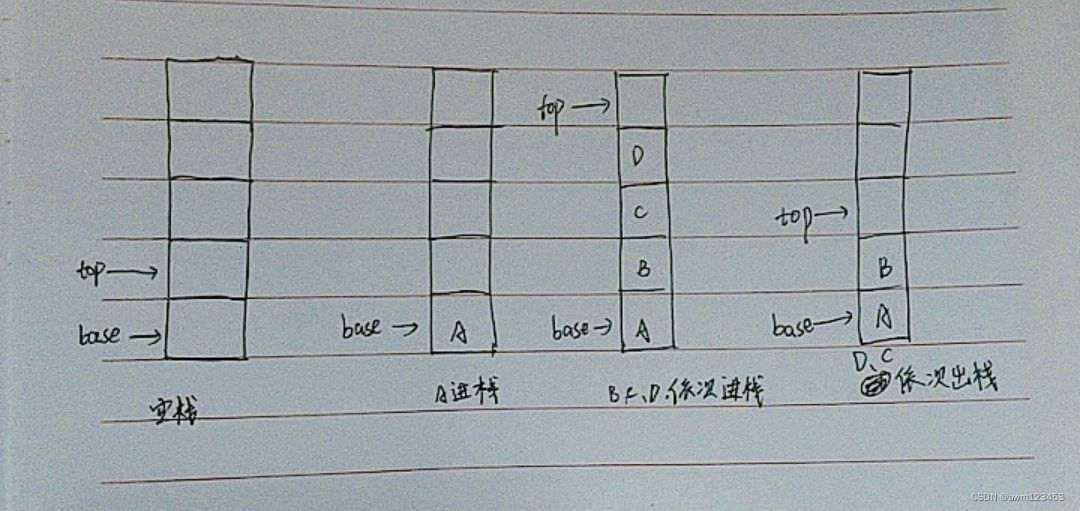 top→
D
C
top→
top→
B
B
base→
base→
A
base→
A
base→
A
空栈
A进栈
B C、D、依次进栈
D、C
依次出栈
CSDN @awm123453